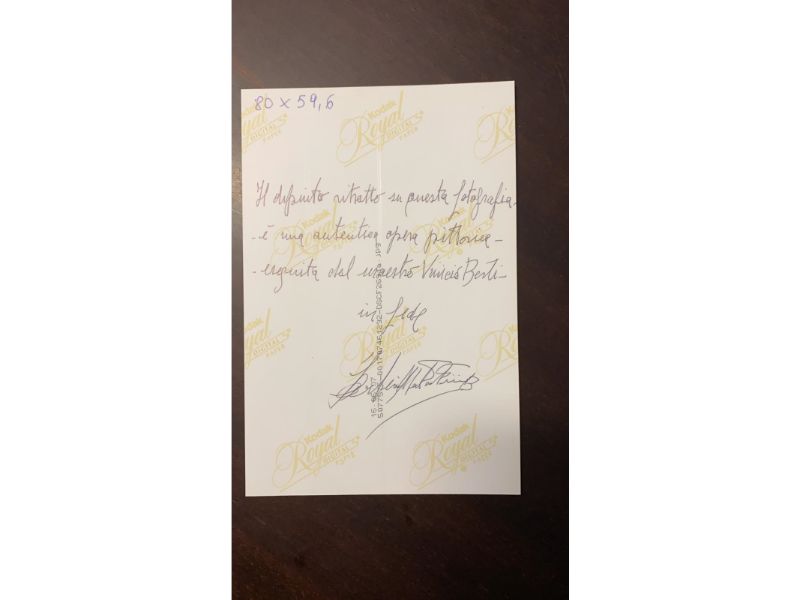 80 x 59,6
Il dipinto ritratto su questa fotografia
- è una autentica opera pittorica -
- eseguita dal maestro Vinicio Berti -
in fede
Kodak
Royal
DIGITAL
PAPER